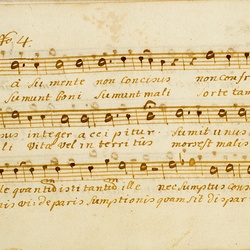 No. 4
à Sumente non concisus non confr
Sumunt boni Sumunt mali sorte tam
sus integer accipitur. Sumit unus
li vitæ vel in territus mors est malis
le quantidisti tantid ille nec Sumptus cons
nis vide paris Sumptionis quam sit dispar